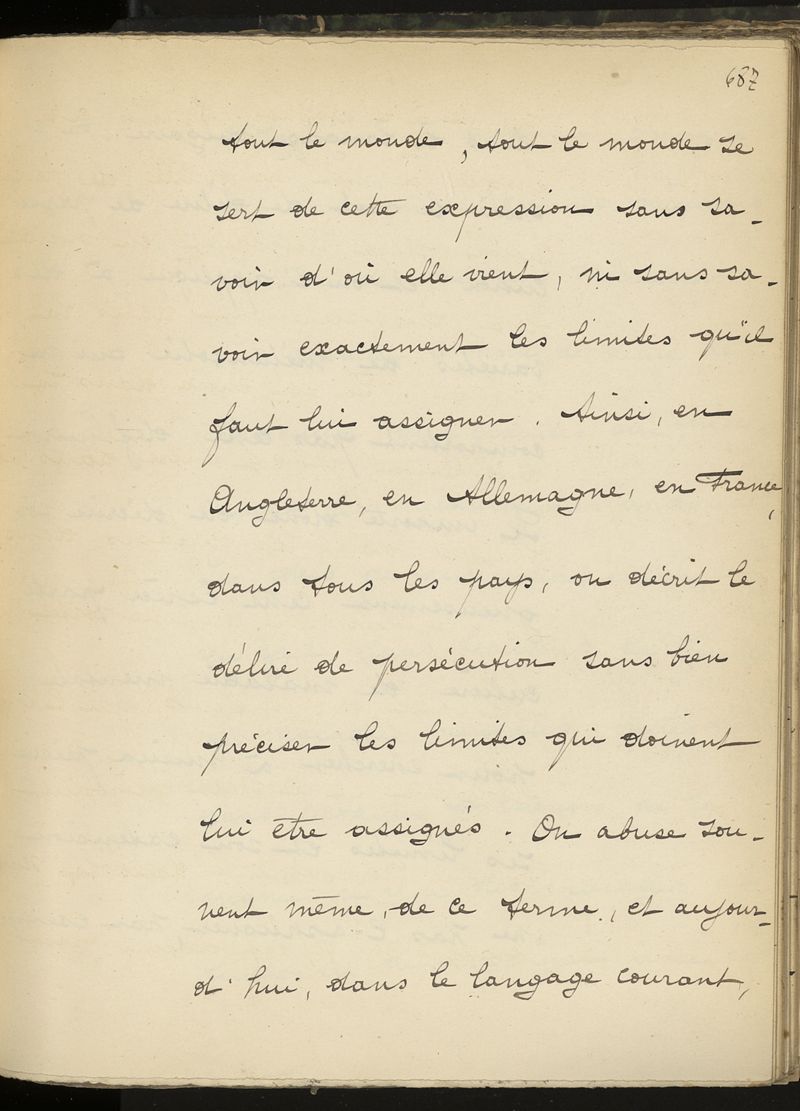 687
tout le monde, tout le monde se
sert de cette expression sans sa-
voir d'où elle vient, ni sans sa-
voir exactement les limites qu'il
faut lui assigner. Ainsi, en
Angleterre, en Allemagne, en France,
dans tous les pays, on décrit le
délire de persécution sans bien
préciser les limites qui doivent
lui être assignés. On abuse sou-
vent même, de ce terme, et aujour-
d'hui, dans le langage courant,